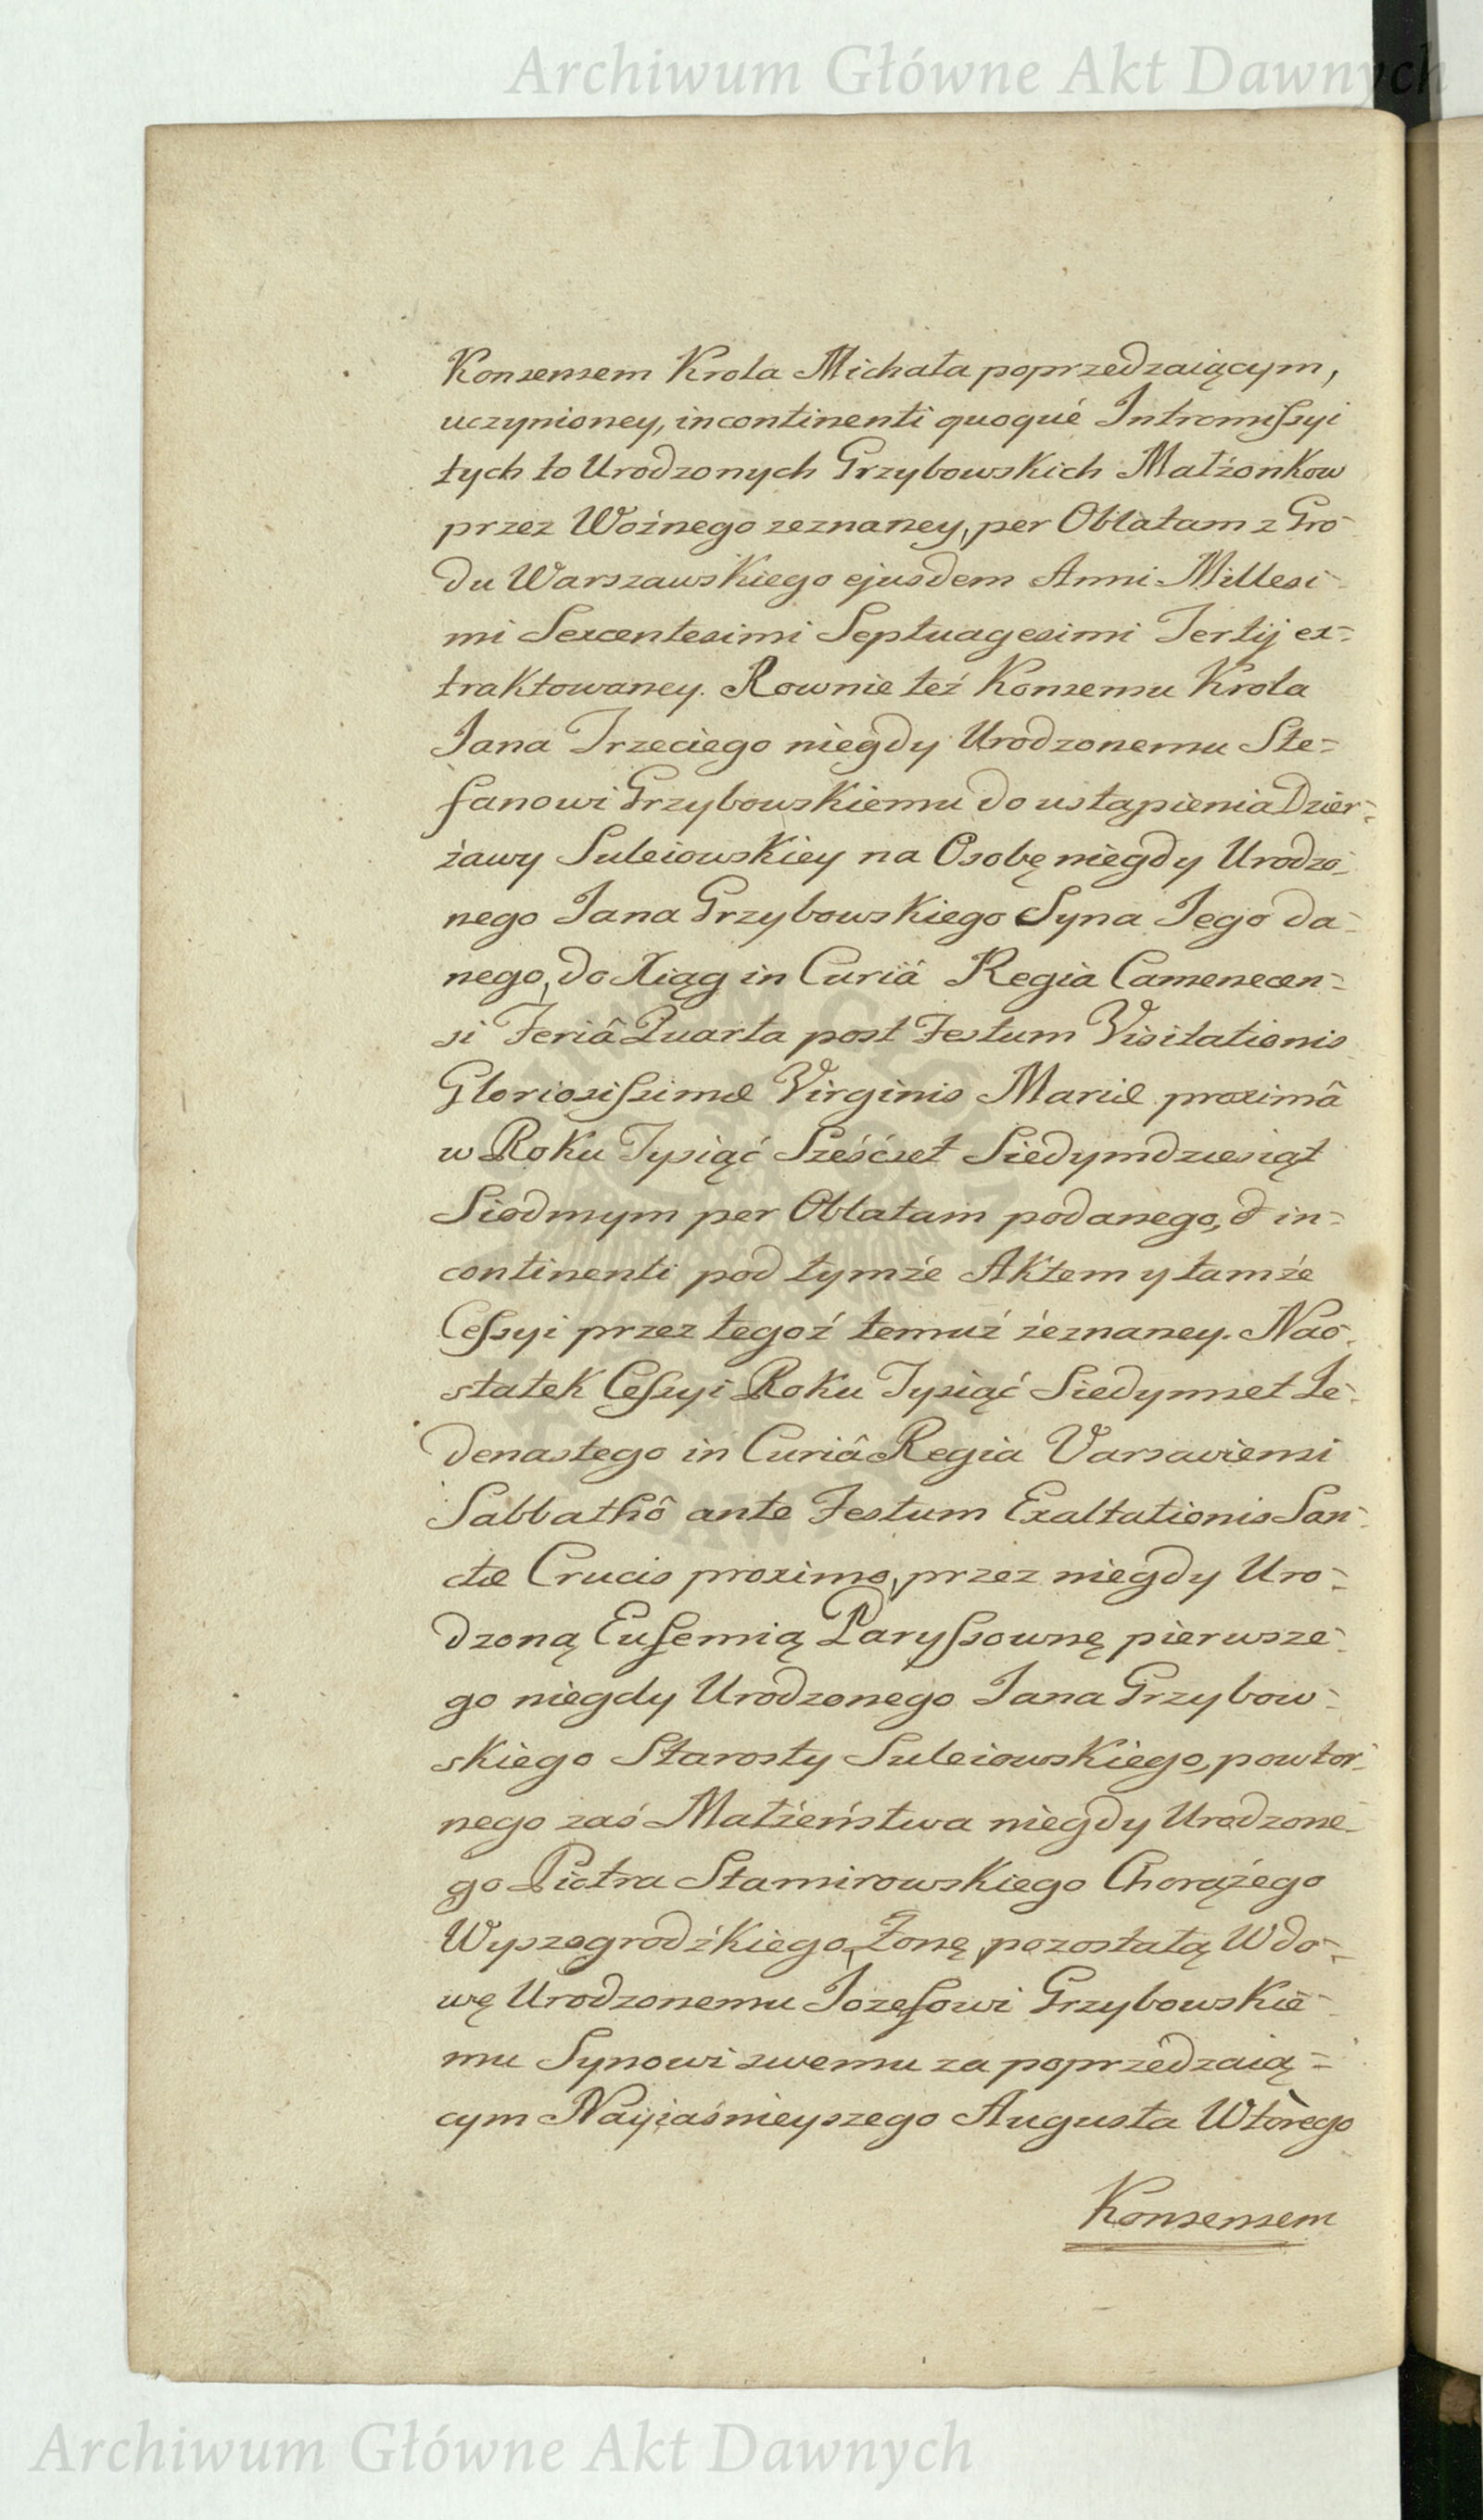 Archiwum Główne Akt Dawnych
Konsensem Krola Michała poprzedzaiącym,
uczynioney, incontinenti quoqué Intromissyi
tych to Urodzonych Grzybowskich Małżonkow
przez Woźnego zeznaney, per Oblatam z Gro-
du Warszawskiego ejusdem Anni Millesi-
mi Sexcentesimi Septuagesimi Tertij ex=
traktowaney. Rownie też Konsensu Krola
Jana Trzeciego niegdy Urodzonemu Ste=
fanowi Grzybowskiemu do ustąpienia Dzier=
żawy Suleiowskiey na Osobę niegdy Urodzo-
nego Jana Grzybowskiego Syna Jego da-
nego, do Xiąg in Curiâ Regia Camenecen=
si Feriâ Quarta post Festum Visitationis
Gloriosissimæ Virginis Mariæ proximâ
w Roku Tysiąć Sześćset Siedymdziesiąt
Siodmym per Oblatam podanego, & in=
continenti pod tymże Aktem y tamże
Cessyi przez tegoż temuż żeznaney. Nao-
statek Cessyi Roku Tysiąć Siedymset Je-
denastego in Curiâ Regia Varsaviensi
Sabbathô ante Festum Exaltationis San-
ctæ Crucis proximo, przez niegdy Uro=
dzoną Eufemią Paryssownę pierwsze-
go niegdy Urodzonego Jana Grzybow=
skiego Starosty Suleiowskiego, powtor-
nego zaś Małżeństwa niegdy Urodzone-
go Piotra Stamirowskiego Chorążego
Wyszogrodźkiego, Żonę, pozostałą Wdo=
wę Urodzonemu Jozefowi Grzybowskie-
mu Synowi swemu za poprzedzaią=
cym Nayiaśnieyszego Augusta Wtòrego
Konsensem
Archiwum Główne Akt Dawnych